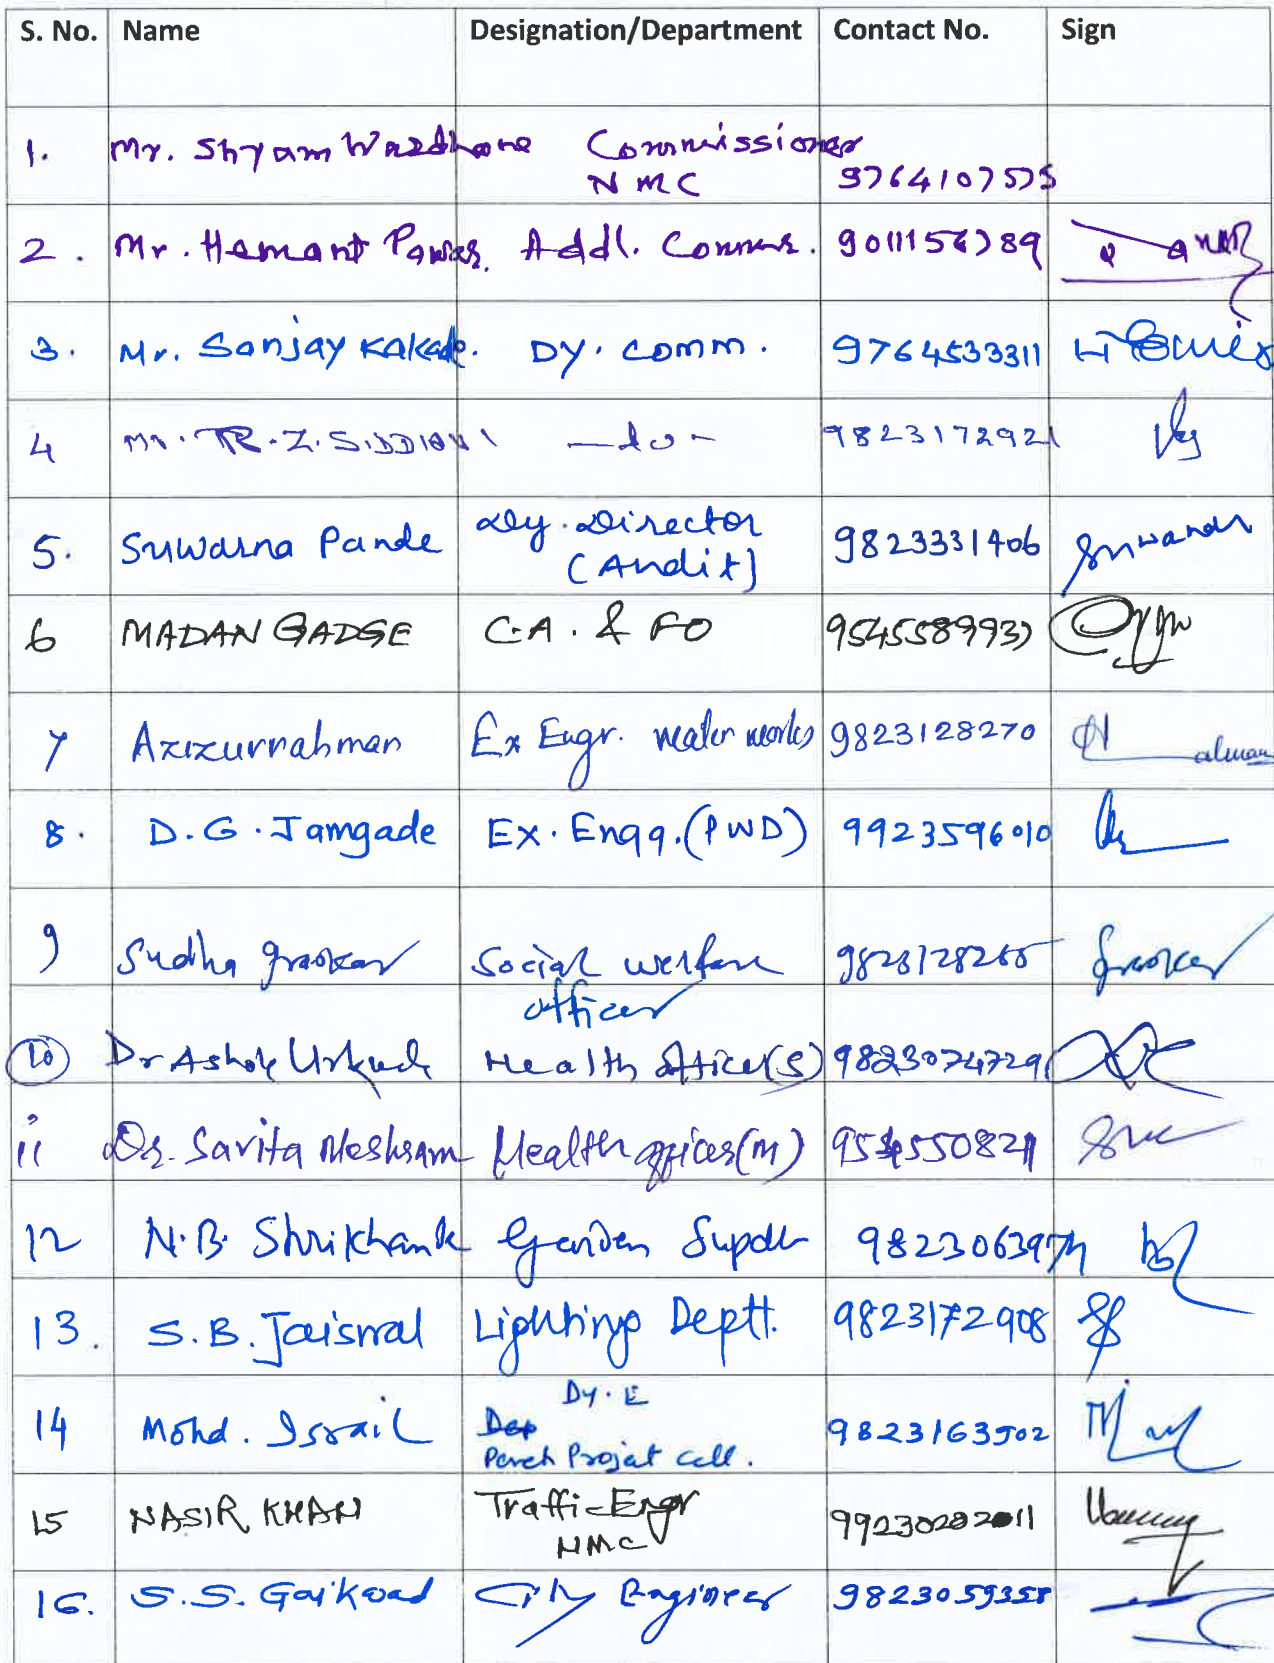 S. No. Name Designation/Department Contact No. Sign
1. Mr. Shyam Wardhane Commissioner
NMC 9764107575
2. Mr. Hemant Pawar. Addl. Comms. 9011156789
3. Mr. Sanjay Kakade. Dy. Comm. 9764533311
4 Mr. R.Z. SIDDIQUI —do— 9823172921
5. Suwarna Pande Dy. Director 9823331406
(Audit)
6 MADAN GADGE C.A. & FO 9545589937
7 Azizurrahman Ex Engr. water works 9823128270
8. D.G. Jamgade Ex. Engg. (PWD) 9923596010
9 Sudha Social welfare
officer
10 Dr Ashok Urkude Health Officer(S) 9823074729
11 Dr. Savita Meshram Health officer(M)
12 N.B. Shrikhande Garden Supdt
13. S.B. Jaiswal Lighting Deptt. 9823172908
14 Mohd. Israil Dy. E 9823163502
Pench Projat Cell.
15 NASIR KHAN Traffic Engr
NMC
16. S.S. Gaikwad City Engineer